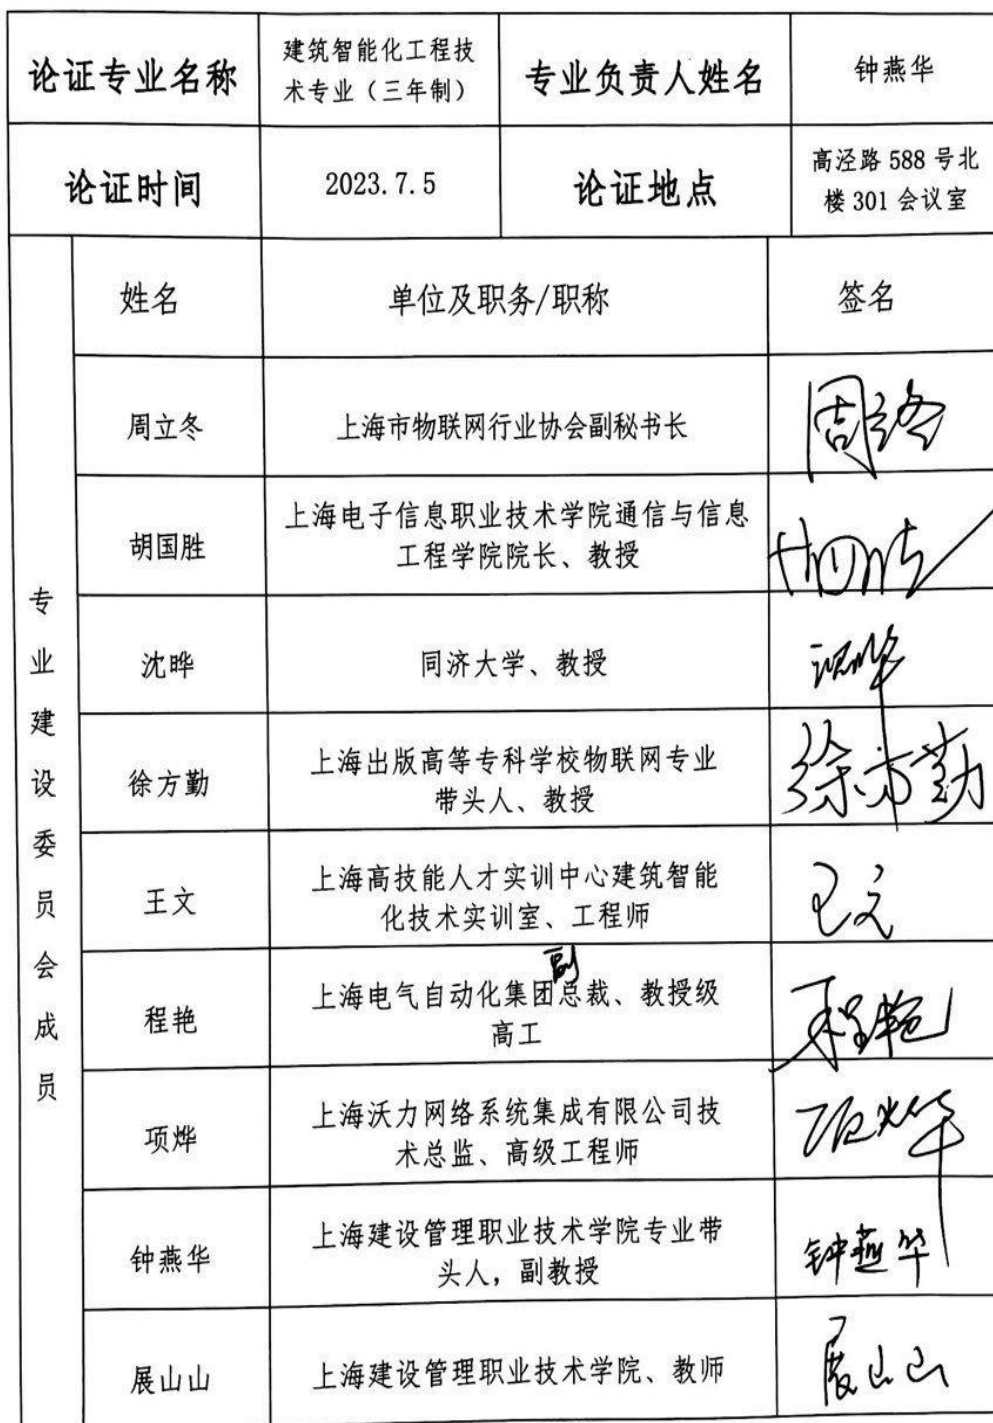 论证专业名称
建筑智能化工程技
术专业（三年制）
专业负责人姓名
钟燕华
论证时间
2023.7.5
论证地点
高泾路 588 号北
楼 301 会议室
专业建设委员会成员
姓名
单位及职务/职称
签名
周立冬
上海市物联网行业协会副秘书长
周立冬
胡国胜
上海电子信息职业技术学院通信与信息
工程学院院长、教授
胡国胜
沈晔
同济大学、教授
沈晔
徐方勤
上海出版高等专科学校物联网专业
带头人、教授
徐方勤
王文
上海高技能人才实训中心建筑智能
化技术实训室、工程师
王文
程艳
副
上海电气自动化集团总裁、教授级
高工
程艳
项烨
上海沃力网络系统集成有限公司技
术总监、高级工程师
项烨
钟燕华
上海建设管理职业技术学院专业带
头人，副教授
钟燕华
展山山
上海建设管理职业技术学院、教师
展山山